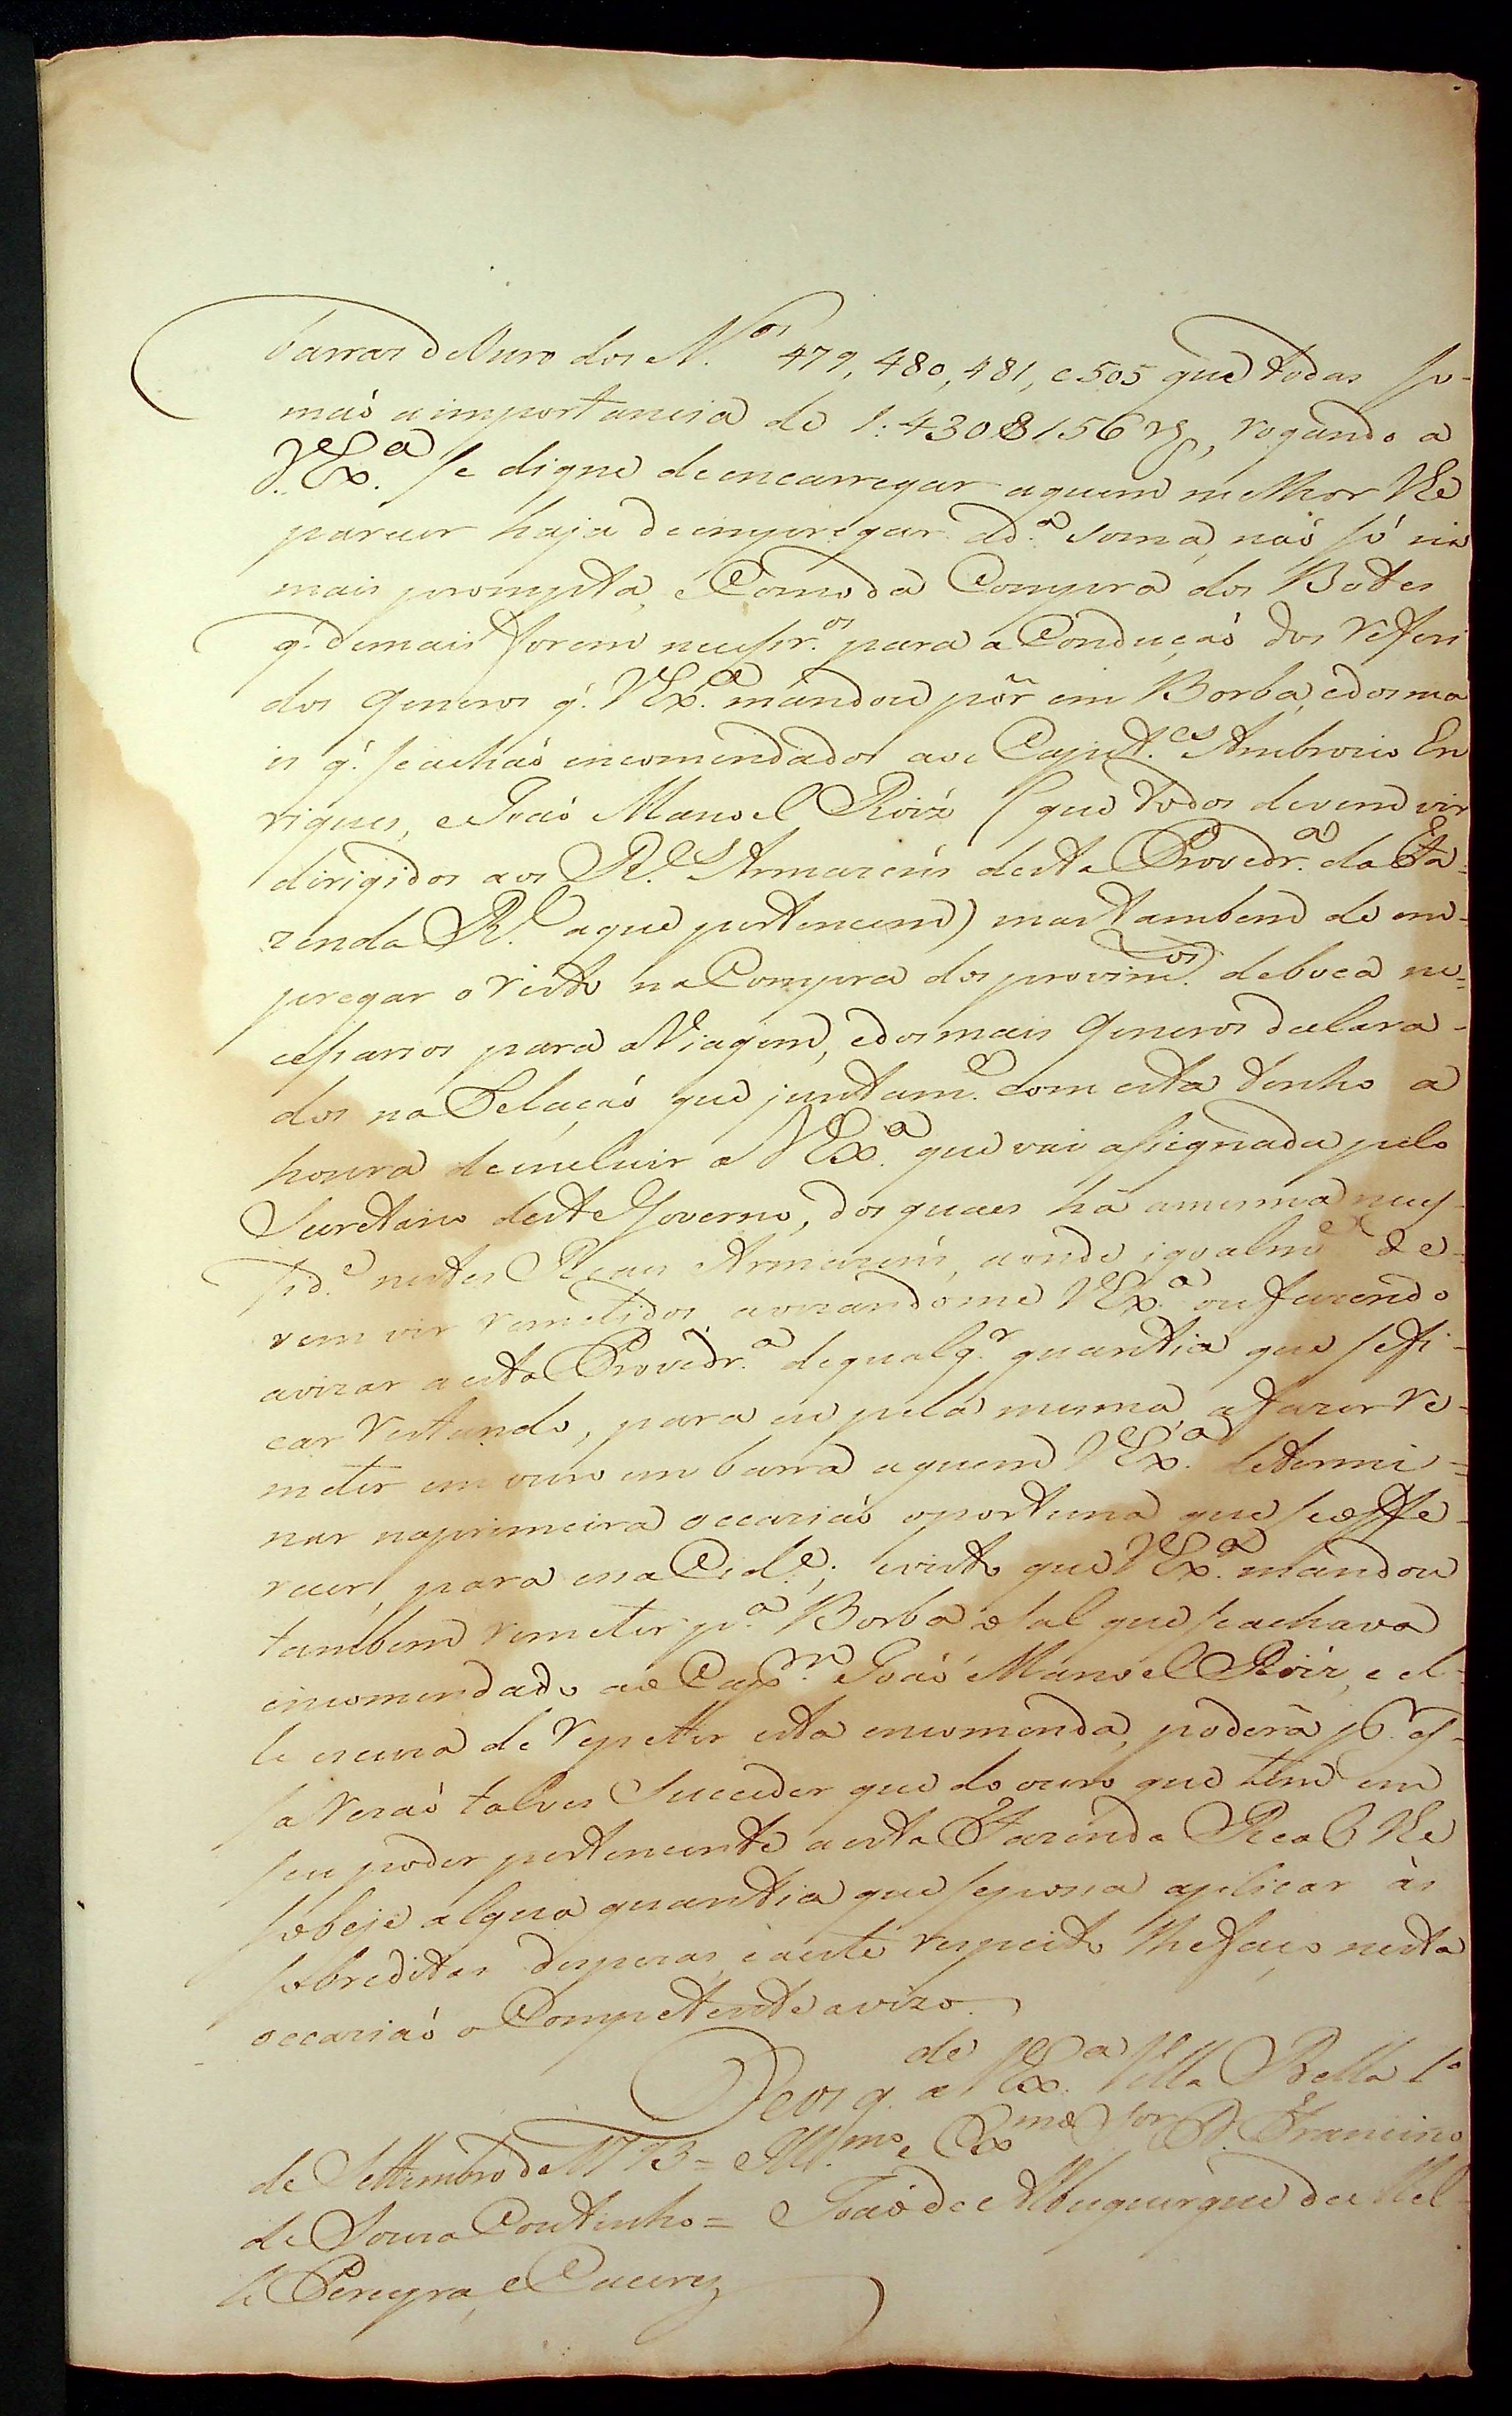 barras de Ouro dos N.os 479, 480, 481, e 505 que todas so-
maõ a importancia de 1:430$156 rs, rogando a
V. Ex.a se digne de encarregar aquem melhor lhe
parecer haja de empregar a d.a soma, naõ só na
mais prompta, e Comoda Compra dos Botes
q. demais forem necessr.os para a Conduçaõ dos referi
dos generos q. V Ex.a mandou pôr em Borba, e dos ma
is q. se achaõ encomendados aos Capit.es Ambrozio En
riques, e Joaõ Manoel Roiz (que todos devem vir
dirigidos aos R.es Armazens desta Provedr.a da Fa-
zenda R.l aque pertencem) mas tambem de em-
pregar o resto na Compra dos provim.tos deboca ne-
cessarios para a Viagem, e dos mais generos declara-
dos na Relaçaõ que juntam.e com esta tenho a
honra de incluir a V Ex.a que vai assignada pelo
Secretario deste Governo, dos quaes há a mesma neces-
sid.e nestes Reaes Armazens, aonde igoalm.e de-
vem vir remetidos, avizandome V Ex.a ou fazendo
avizar a esta Provedr.a de qualq.r quantia que se fi-
car restando, para eu pela mesma, a fazer re-
meter em ouro em barra aquem V Ex.a determi-
nar na primeira occaziaõ oportuna que se offe-
recer, para essa Cid.e; evisto que V Ex.a mandou
tambem remeter p.a Borba o sal que se achava
encomendado ao Cap.m Joaõ Manoel Roiz, e el-
le escuza de repetir esta encomenda, poderá p.r es-
sa rezaõ talves Succeder que do ouro que tem em
seu poder pertencente a esta Fazenda Real lhe
sobeje algua quantia que se possa aplicar às
sobreditas despezas, e a este respeito lhe faço nesta
occaziaõ o Competente avizo.
Deos g.de a V Ex.a Villa Bella 1o
de Settembro de 1793 = Ill.mo e Ex.mo Sor D. Francisco
de Souza Coutinho = Joaõ de Albuquerque de Mel-
lo Pereyra, e Caceres